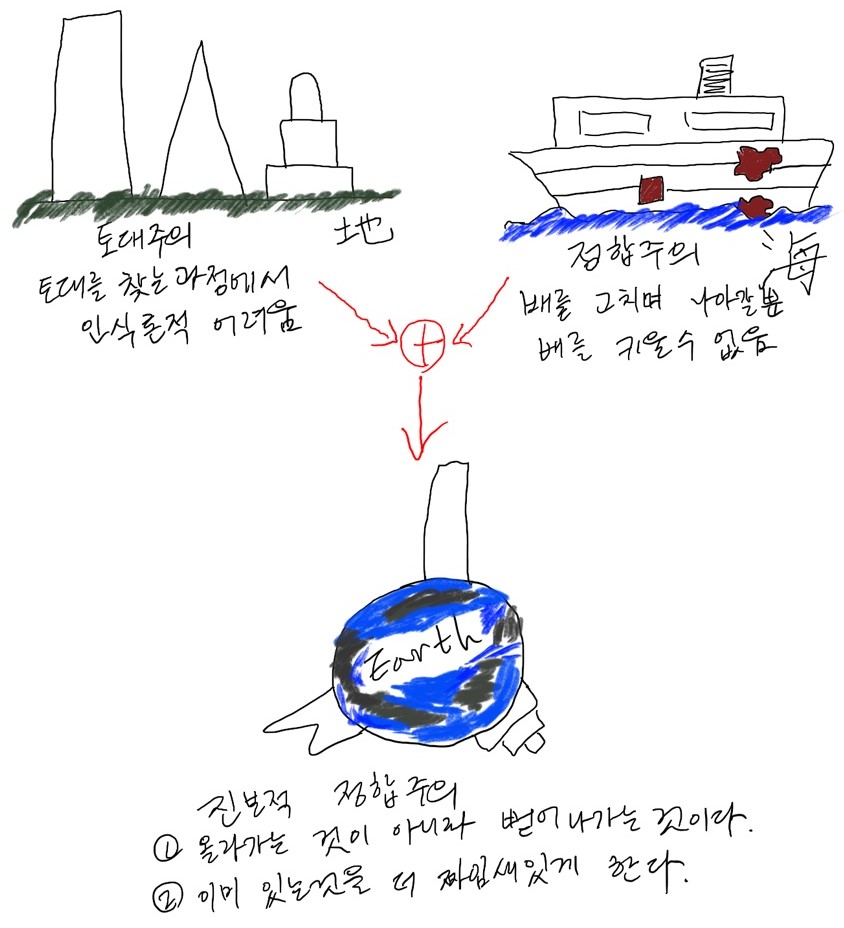 토대주의
地
토대를 찾는 과정에서
인식론적 어려움
정합주의
海
배를 고치며 나아갈뿐
배를 키울수 없음
Earth
진보적 정합주의
① 올라가는 것이 아니라 뻗어나가는 것이다.
② 이미 있는것을 더 짜임새있게 한다.